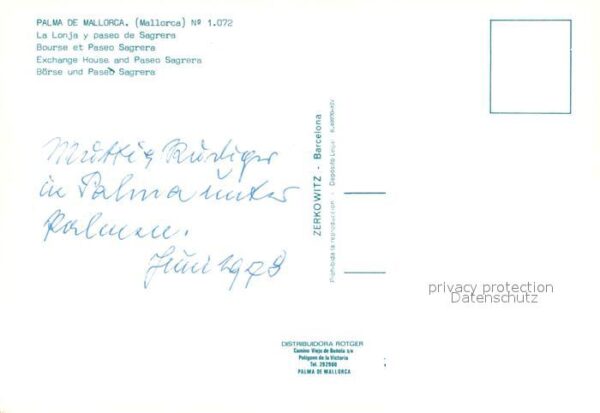 PALMA DE MALLORCA. (Mallorca) Nº 1.072
La Lonja y paseo de Sagrera
Bourse et Paseo Sagrera
Exchange House and Paseo Sagrera
Börse und Paseo Sagrera
Mutti & Rüdiger
in Palma unter
Palmen.
Juni 1978
ZERKOWITZ - Barcelona
Prohibida la reproducción - Depósito Legal
privacy protection
Datenschutz
DISTRIBUIDORA ROTGER
Camino Viejo de Buñola s/n
Polígono de la Victoria
Tel. 292900
PALMA DE MALLORCA